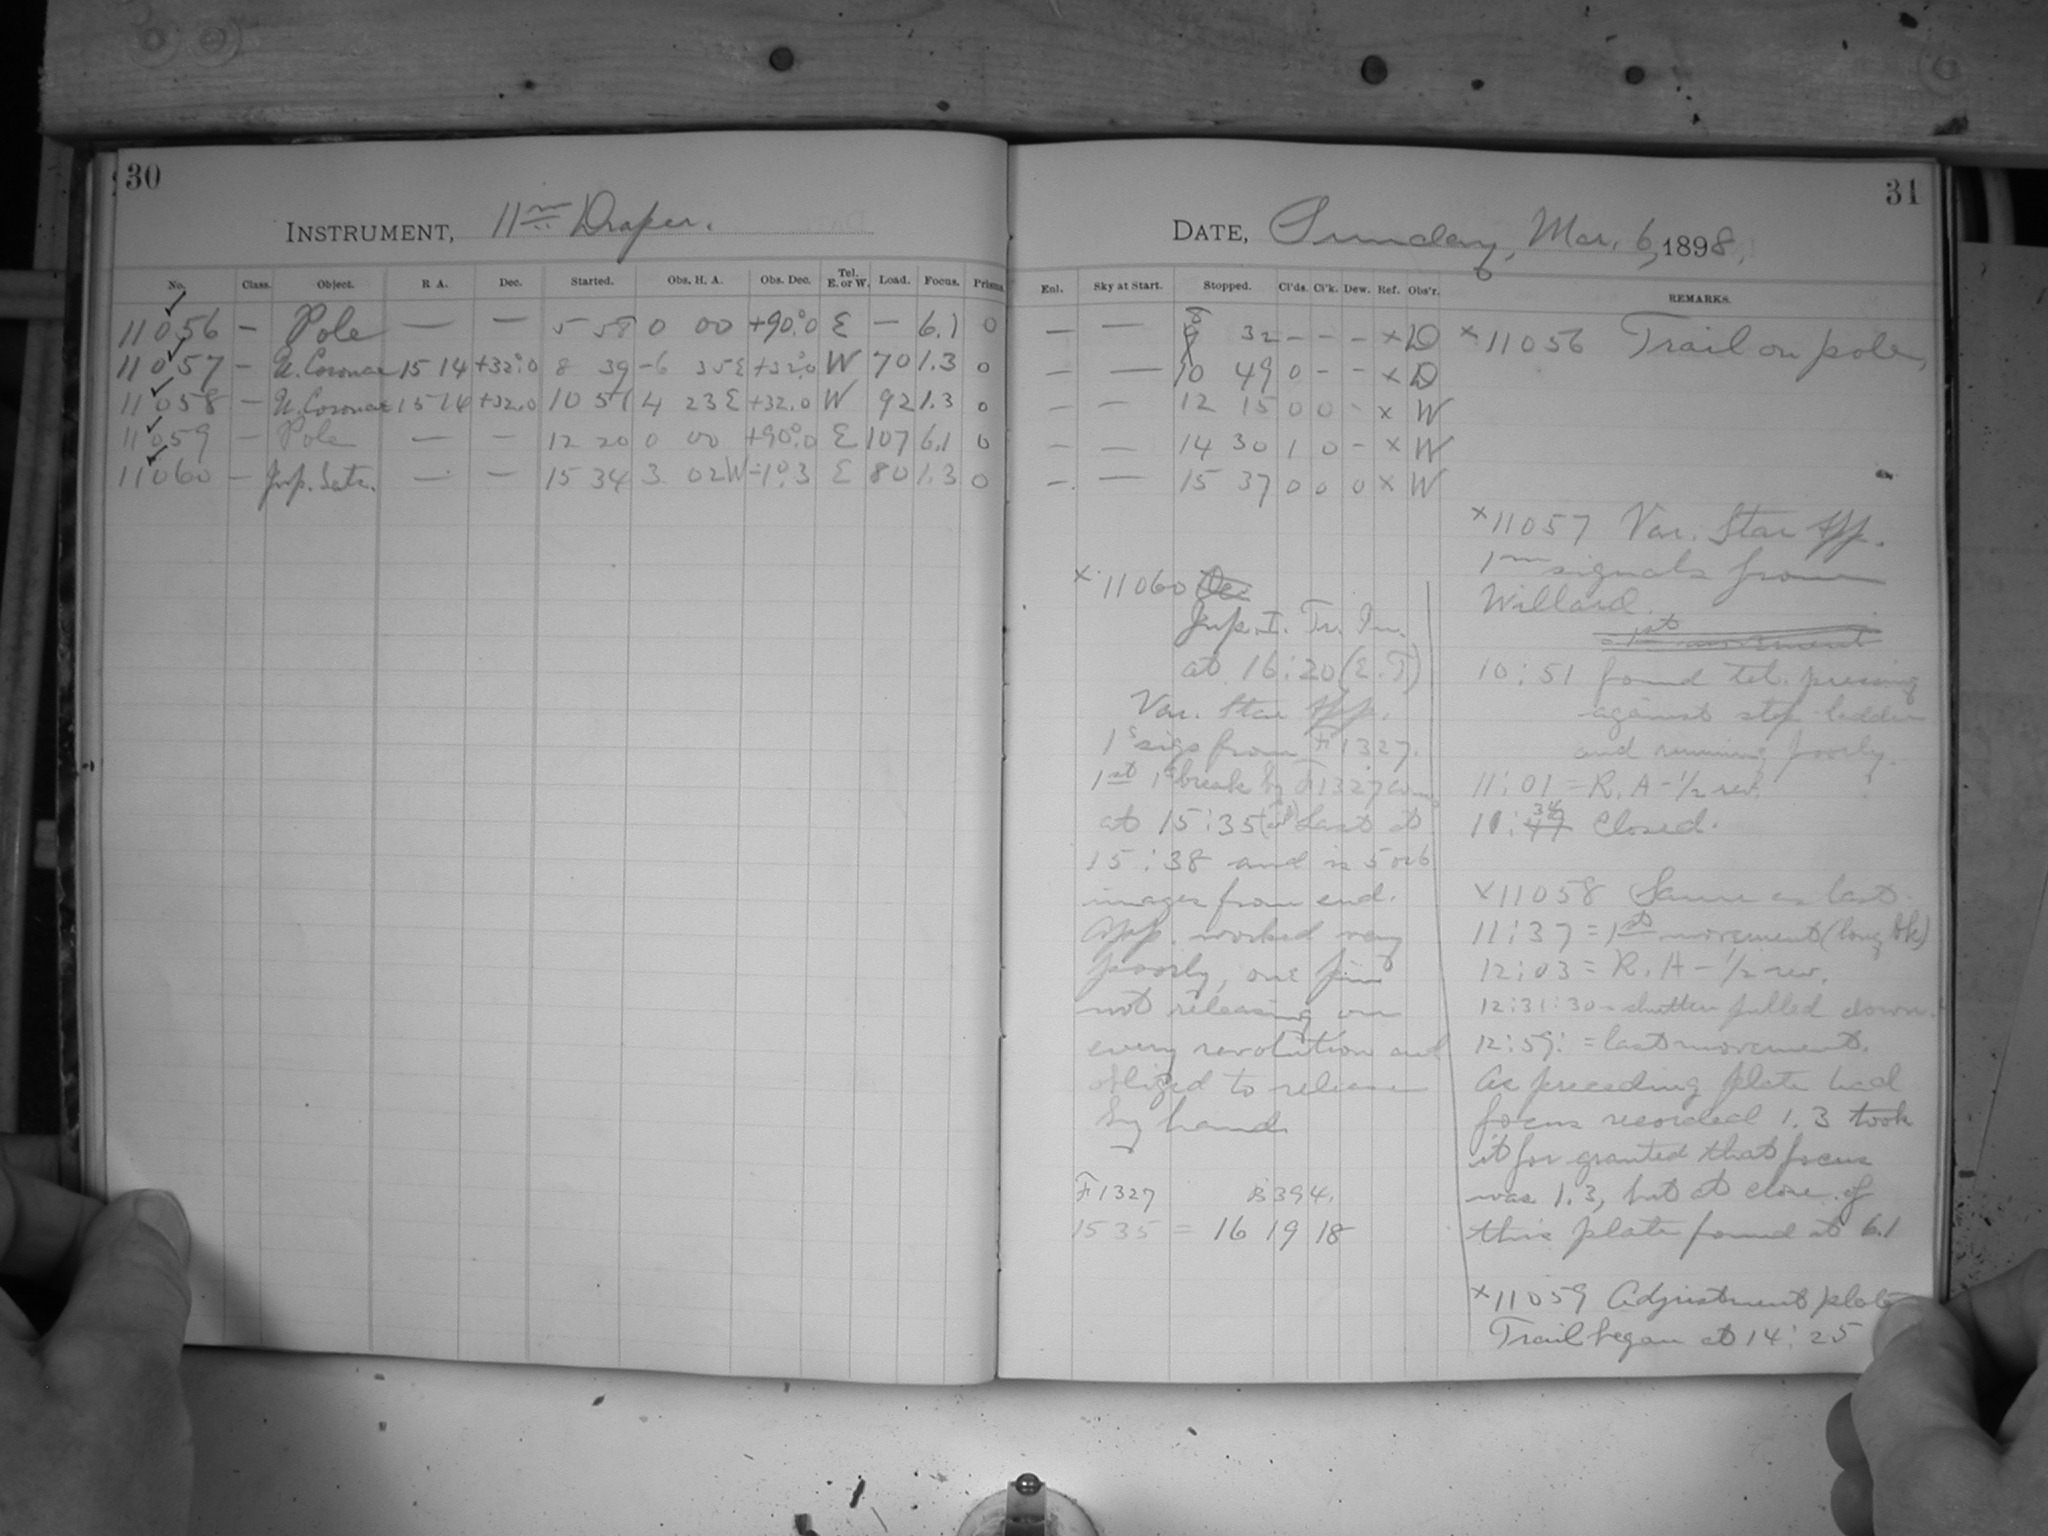 30
INSTRUMENT, 11 in Draper.
No. Class. Object. R A. Dec. Started. Obs. H. A. Obs. Dec. Tel. E. or W. Load. Focus. Prisms.
11056 — Pole — — 5 58 0 00 +90°.0 E — 6.1 0
11057 — U. Coronae 15 14 +32°.0 8 39 -6 35E +32°.0 W 70 1.3 0
11058 — U. Coronae 15 14 +32.0 10 51 4 23E +32.0 W 92 1.3 0
11059 — Pole — — 12 20 0 00 +90°.0 E 107 6.1 0
11060 — Jup. Sats. — — 15 34 3 02W -1°.3 E 80 1.3 0
31
DATE, Sunday, Mar. 6, 1898,
Enl. Sky at Start. Stopped. Cl'ds. Cl'k. Dew. Ref. Obs'r. REMARKS.
— — 8 32 — — — × D
— — 10 49 0 — — × D
— — 12 15 0 0 — × W
— — 14 30 1 0 — × W
— — 15 37 0 0 0 × W
×11060
Jup. I. Tr. In.
at 16:20 (E.T)
Var. Star App.
1s sigs from F1327.
1st 1s break by F1327 
at 15:35 Last at
15:38 and is 5 or 6
images from end.
App. worked very
poorly, one pin
not releasing on
every revolution and
obliged to release
by hand.
F1327 B394.
15 35 = 16 19 18
×11056 Trail on pole,
×11057 Var. Star App.
1m signals from
Willard.
1st movement
10:51 found tel. pressing
against step ladder
and running poorly.
11:01 = R. A - 1/2 rev.
11:34 Closed.
×11058 Same as last.
11:37 = 1st movement (long bk)
12:03 = R. A - 1/2 rev.
12:31:30 - shutter pulled down.
12:59: = last movement.
As preceding plate had
focus recorded 1.3 took
it for granted that focus
was 1.3, but at close of
this plate found at 6.1
×11059 Adjustment plate
Trail began at 14:25